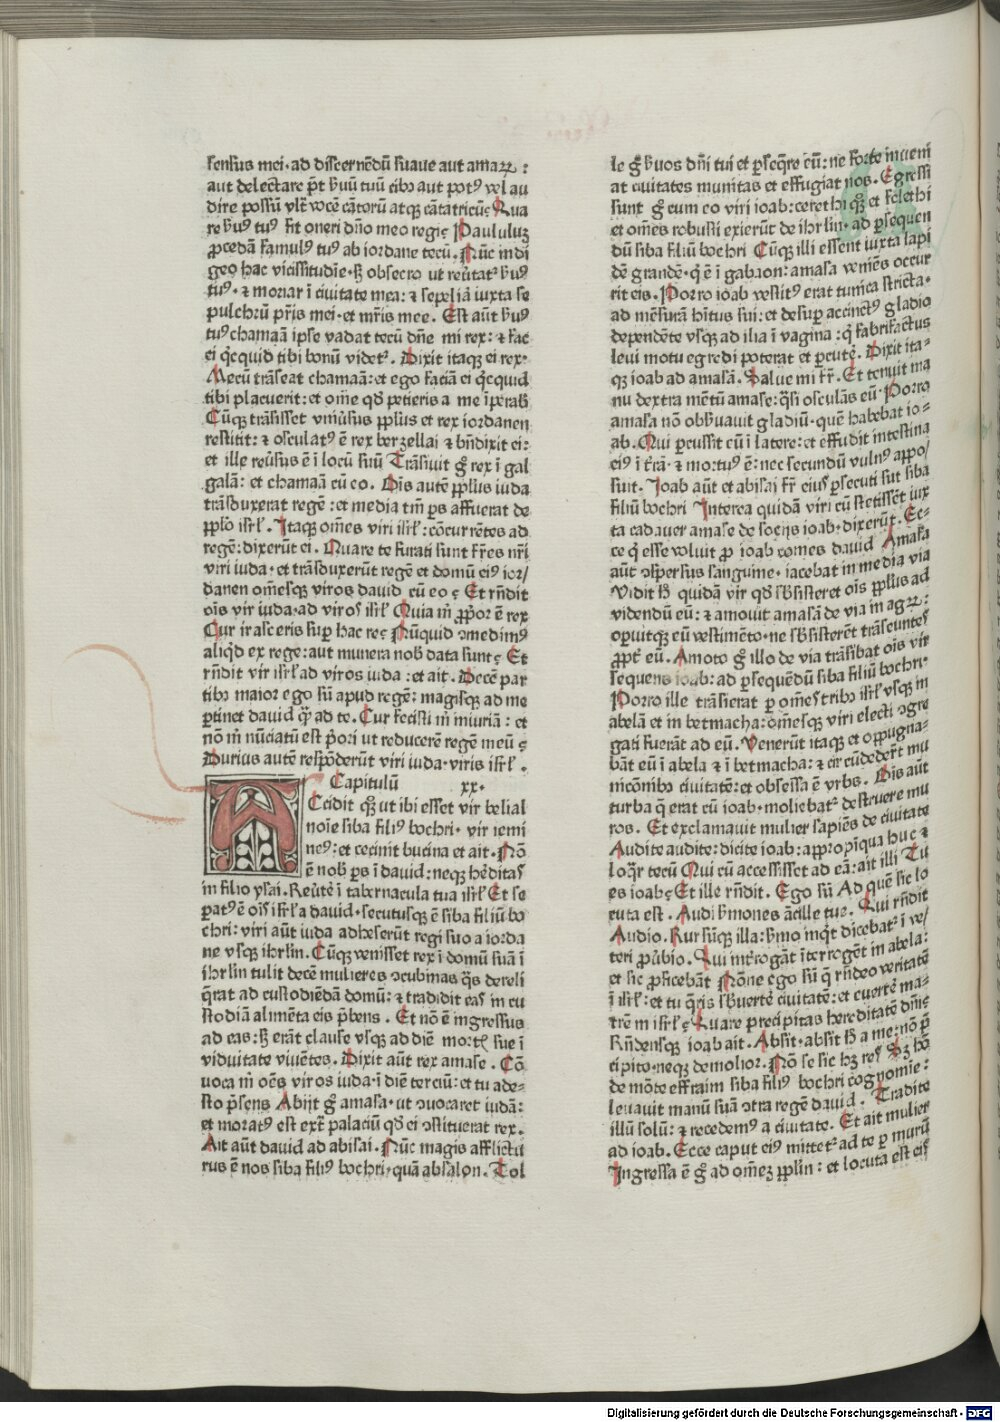 sensus mei· ad discernēdū suaue aut amaꝝ :
aut delectare p̄t ẜuū tuū cibꝰ aut potꝰ vel au
dire possū vlt̄ vocē cātorū atqꝫ cātatricūꝫ Qua
re ẜuꝰ tuꝰ sit oneri dn̄o meo regiꝫ Paululuꝫ
ꝓcedā famulꝰ tuꝰ ab iordane tecū. Nūc indi
geo hac vicissitudīe· ſꝫ obsecro ut reútatᷣ ẜuꝰ
tuꝰ· ⁊ moriar ī ciuitate mea: ⁊ sepeliā iuxta se
pulchrū pr̄is mei· et mr̄is mee. Est aūt ẜuꝰ
tuꝰ chamaā ipse vadat tecū dn̄e mi rex: ⁊ fac
ei qͥcquid tibi bonū videtᷣ. Dixit itaqꝫ ei rex·
Mecū trāseat chamaā: et ego faciā ei qͥcquid
tibi placuerit: et om̄e qd̛ petieris a me īperab̛
Cūqꝫ trāsisset vniúsus ppl̄us et rex iordanen
restitit: ⁊ osculatꝰ ē rex berzellai ⁊ bn̄dixit ei:
et ille reúsus ē ī locū suū Trāsiuit g̛ rex ī gal
galā: et chamaā cū eo. Oīs autē ppl̄us iuda
trāsduxerat regē: et media tm̄ ps affuerat de
pplo isrl̛. Itaqꝫ om̄es viri isrl̛: cōcurrētes ad
regē: dixerūt ei. Quare te furati sunt fr̄es nr̄i
viri iuda· et trāsduxerūt regē et domū eiꝰ ior/
danen om̄esqꝫ viros david cū eoꝫ Et rn̄dit
oīs vir iuda· ad viros isrl̛ Quia m̄ ꝓpor ē rex
Cur irasceris sup hac reꝫ Nūquid ꝯmedimꝰ
aliqͥd ex rege: aut munera nob̛ data suntꝫ Et
rn̄dit vir isrl̛ ad viros iuda: et ait. Decē par
tibꝰ maior ego sū apud regē: magisqꝫ ad me
ꝑtinet david qͣ̄ ad te. Cur fecisti m̄ iniuriā: et
nō m̄ nūciatū est p̄ori ut reducerē regē meū ꝫ
Durius autē respōderūt viri iuda· viris isrl̛.
Capitulū xx·
ACcidit qꝫ ut ibi esset vir belial
noīe siba filiꝰ bochri· vir iemi
neꝰ: et cecinit bucina et ait. Nō
ē nob̛ ps ī david: neqꝫ hēditas
in filio ysai. Reútē ī tabernacula tua isrl̛ Et se
patꝰ ē oīs isrl̛ a david· secutusqꝫ ē siba filiū bo
chri: viri aūt iuda adheserūt regi suo a iorda
ne vsqꝫ ihrl̄m. Cūqꝫ venisset rex ī domū suā ī
ihrl̄m tulit decē mulieres ꝯcubinas qͣs dereli
qͣrat ad custodiēdā domū: ⁊ tradidit eas in cu
stodiā alimēta eis p̄bens. Et nō ē ingressus
ad eas: ſꝫ erāt clause vsqꝫ ad diē mortꝭ sue ī
viduitate viuētes. Dixit aūt rex amase. Cō
voca m̄ oēs viros iuda· ī diē terciū: et tu ade-
sto p̄sens Abijt g̛ amasa· ut ꝯuocaret iudā:
et moratꝰ est ext̄ palaciū qd̛ ei ꝯstituerat rex.
Ait aūt david ad abisai. Nūc magis afflictu
rus ē nos siba filiꝰ bochri, quā absalon. Tol
le g̛ ẜuos dn̄i tui et ꝑseqͤre eū: ne forte inueni
at ciuitates munitas et effugiat nos. Egressi
sunt g̛ cum eo viri ioab: cerethi qꝫ et felethi
et om̄es robusti exierūt de ihrl̄m· ad ꝑsequen
dū siba filiū bochri Cūqꝫ illi essent iuxta lapi
dē grandē· qͥ ē ī gabaon: amasa veniēs occur
rit eis. Porro ioab vestitꝰ erat tunica stricta·
ad mēsurā hītus sui: et desuꝑ accinctꝰ gladio
dependēte vsqꝫ ad ilia ī vagina: qͥ fabrifactus
leui motu egredi poterat et ꝑcutē. Dixit ita-
qꝫ ioab ad amasā. Salue mi fr̄. Et tenuit ma
nu dextra mētū amase: qͣsi osculās eū Porro
amasa nō obẜuauit gladiū· quē habebat io-
ab. Qui ꝑcussit eū ī latere: et effudit intestina
eiꝰ ī t̄rā· ⁊ mortuꝰ ē: nec secundū vulnꝰ appo/
suit. Ioab aūt et abisai fr̄ eius ꝑsecuti sūt siba
filiū bochri Interea quidā viri cū stetissēt iux
ta cadauer amase de socijs ioab· dixerūt. Ec-
ce qͥ esse voluit ꝓ ioab comes david Amasa
aūt ꝯspersus sanguine· iacebat in media via
Vidit h̛ quidā vir qd̛ sb̛sisteret oīs ppl̄us ad
videndū eū: ⁊ amouit amasā de via in agꝝ:
oꝑuitqꝫ eū vestimēto· ne sb̛sisterēt trāseuntes
ꝓpt̛ eū. Amoto g̛ illo de via trāsibat oīs vir
sequens ioab: ad ꝑsequēdū siba filiū bochri·
Porro ille trāsierat ꝑ om̄es tribꝰ isrl̛ vsqꝫ in
abelā et in betmacha: om̄esqꝫ viri electi ꝯgre
gati fuerāt ad eū. Venerūt itaqꝫ et oppugna-
bāt eū ī abela ⁊ ī betmacha: ⁊ circūdeder̄t mu
nicōnibꝰ ciuitatē: et obsessa ē vrbs. Oīs aūt
turba qͣ erat cū ioab· moliebatᷣ destruere mu
ros. Et exclamauit mulier sapiēs de ciuitate
Audite audite: dicite ioab: appropīqua huc ⁊
loqͣr tecū Qui cū accessisset ad eā: ait illi Tu
es ioabꝫ Et ille rn̄dit. Ego sū Ad quē sic lo
cuta est. Audi ẜmones ācille tue. Qui rn̄dit
Audio. Rursūqꝫ illa: ẜmo inqͥt dicebatᷣ ī ve/
teri ꝓuerbio. Qui int̄rogāt īterrogēt in abela:
et sic ꝓficebāt Nōne ego sū qͥ rn̄deo veritatē
ī isrl̛: et tu qͣris sb̛uertē ciuitatē: et euertē ma-
trē m isrl̛ꝫ Quare p̄cipitas hereditatē dn̄iꝫ
Rn̄densqꝫ ioab ait. Absit· absit h̛ a me: nō p̄
cipito· neqꝫ demolior. Nō se sic hꝫ res Sꝫ hō
de mōte effraim siba filiꝰ bochri cognomīe:
leuauit manū suā ꝯtra regē david. Tradite
illū solū: ⁊ recedemꝰ a ciuitate. Et ait mulier
ad ioab. Ecce caput eiꝰ mittetᷣ ad te ꝑ murū
Ingressa ē g̛ ad om̄eꝫ ppl̄m: et locuta est eis
Digitalisierung gefördert durch die Deutsche Forschungsgemeinschaft - DFG